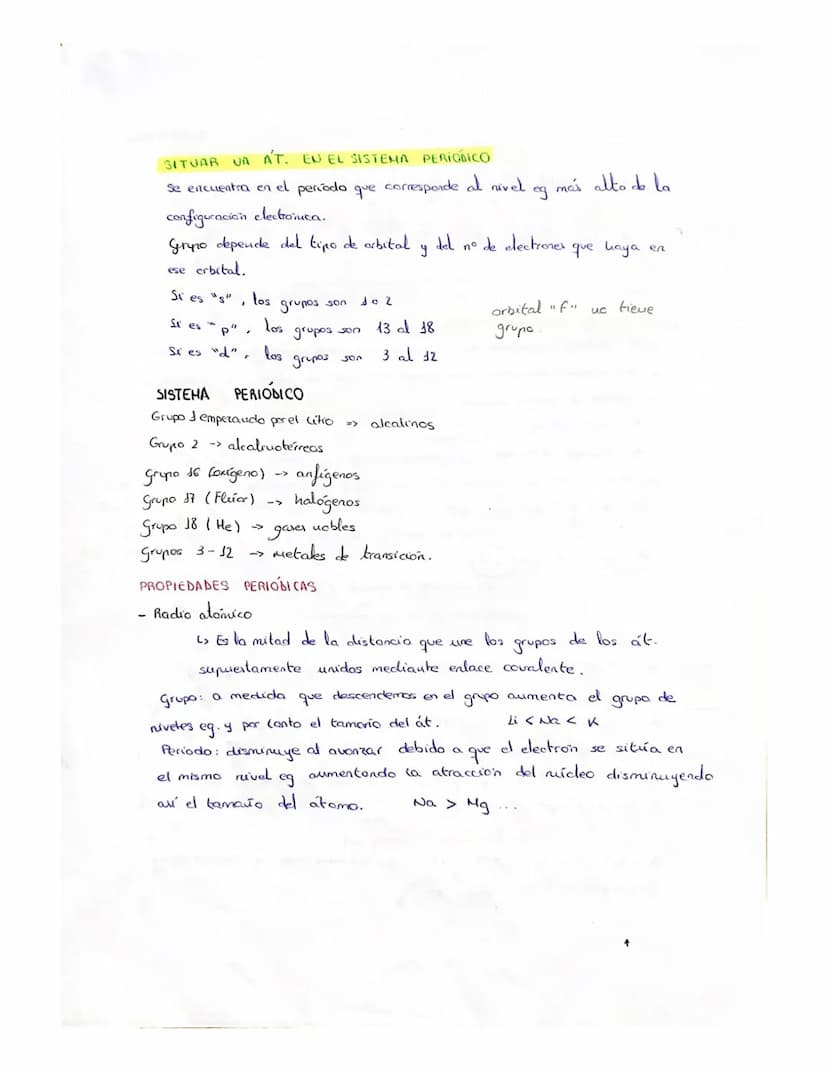 SITUAR UN ÁT. EN EL SISTEMA PERIÓDICO
Se encuentra en el período que corresponde al nivel eg más alto de la
configuración electrónica.
Grupo depende del tipo de orbital y del nº de electrones que haya en
ese orbital.
Si es "s", los grupos son 1 o 2
Si es "p", los grupos son 13 al 18
Si es "d", los grupos son 3 al 12
orbital "f" no tiene
grupo.
SISTEMA PERIÓDICO
Grupo 1 empezando por el Litio => alcalinos
Grupo 2 -> alcalinotérreos
Grupo 16 (oxígeno) -> anfígenos
Grupo 17 (Flúor) -> halógenos
Grupo 18 (He) -> gases nobles
Grupos 3-12 -> metales de transición.
PROPIEDADES PERIÓDICAS
- Radio atómico
↳ Es la mitad de la distancia que une los grupos de los át.
supuestamente unidos mediante enlace covalente.
Grupo: a medida que descendemos en el grupo aumenta el grupo de
niveles eg. y por tanto el tamaño del át. Li < Na < K
Período: disminuye al avanzar debido a que el electrón se sitúa en
el mismo nivel eg aumentando la atracción del núcleo disminuyendo
así el tamaño del átomo. Na > Mg ...